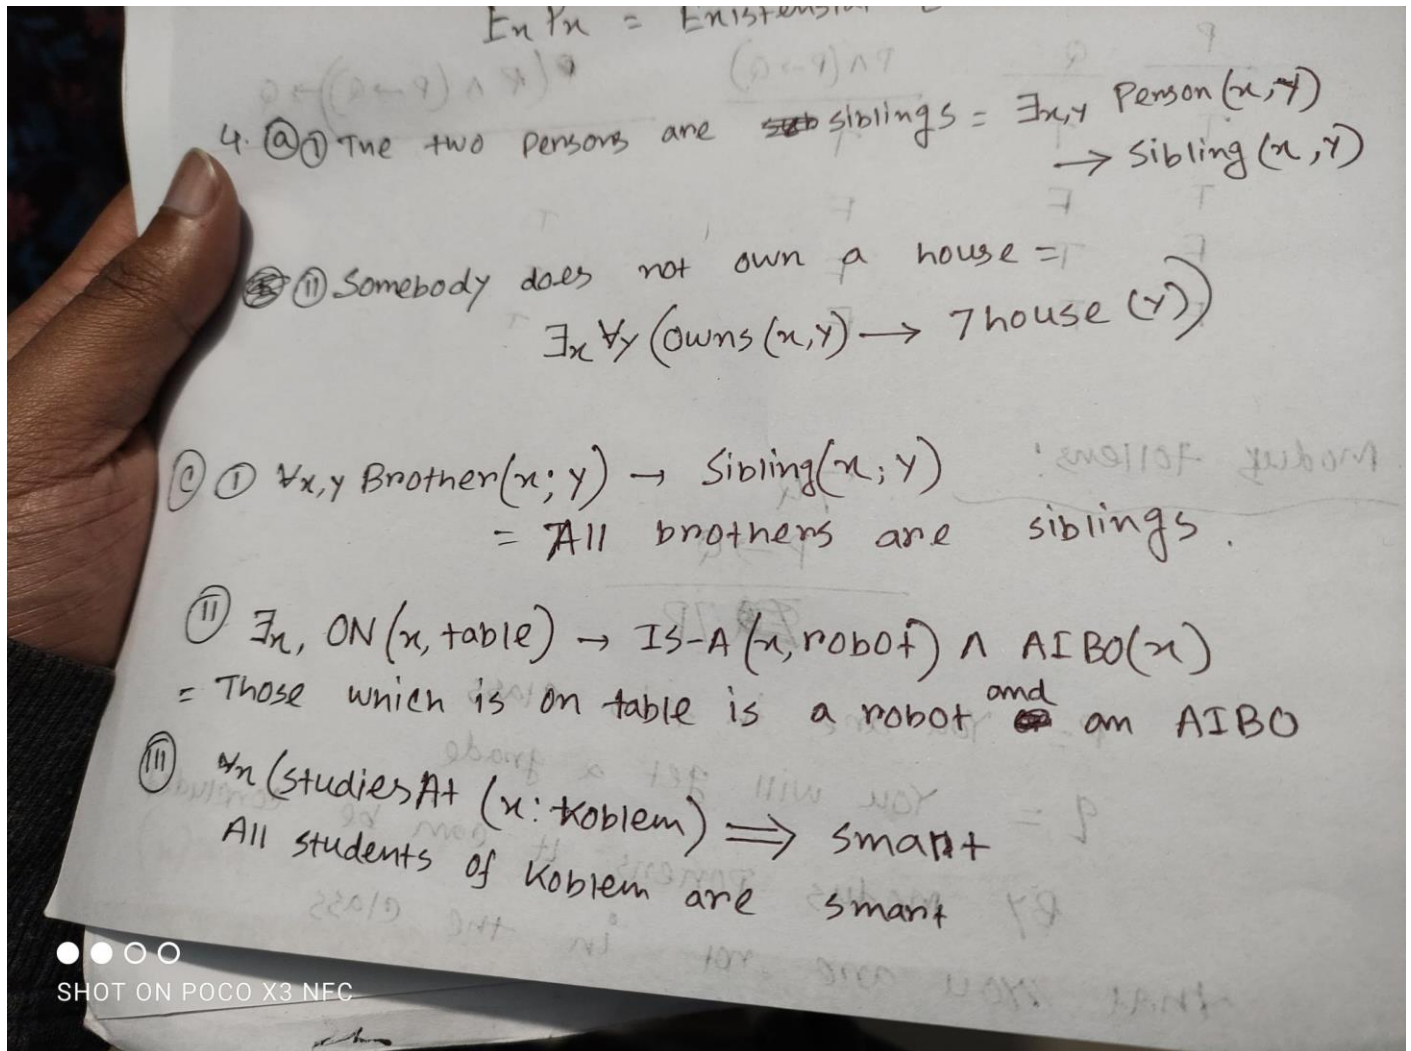 Ex Px = Existensial
4. ⓐ ① The two persons are siblings = ∃x,y Person(x,y)
→ Sibling(x,y)
⑪ Somebody does not own a house =
∃x ∀y (owns(x,y) → ¬house(y))
Ⓒ ① ∀x,y Brother(x;y) → Sibling(x;y)
= All brothers are siblings.
⑪ ∃x, ON(x,table) → IS-A(x,robot) ∧ AIBO(x)
= Those which is on table is a robot and an AIBO
(III) ∀x (studies At (x: Koblem) ⟹ smart
All students of Koblem are smart
SHOT ON POCO X3 NFC